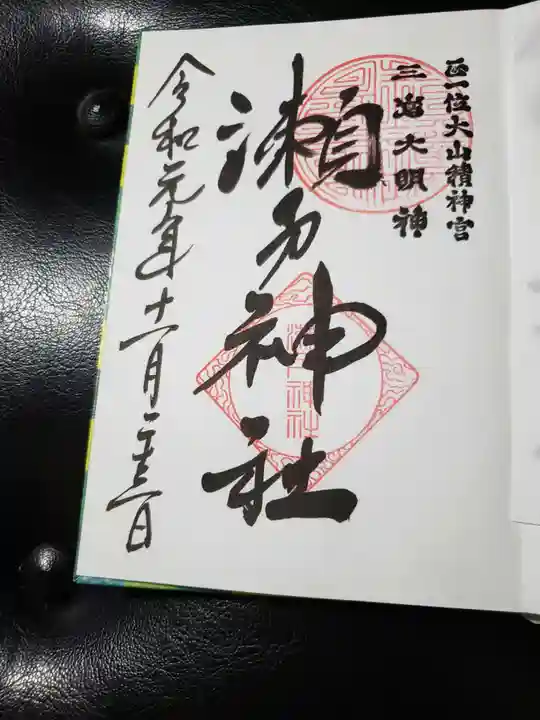 正一位大山積神宮
三嶋大明神
瀬戸神社
令和元年十一月二十三日